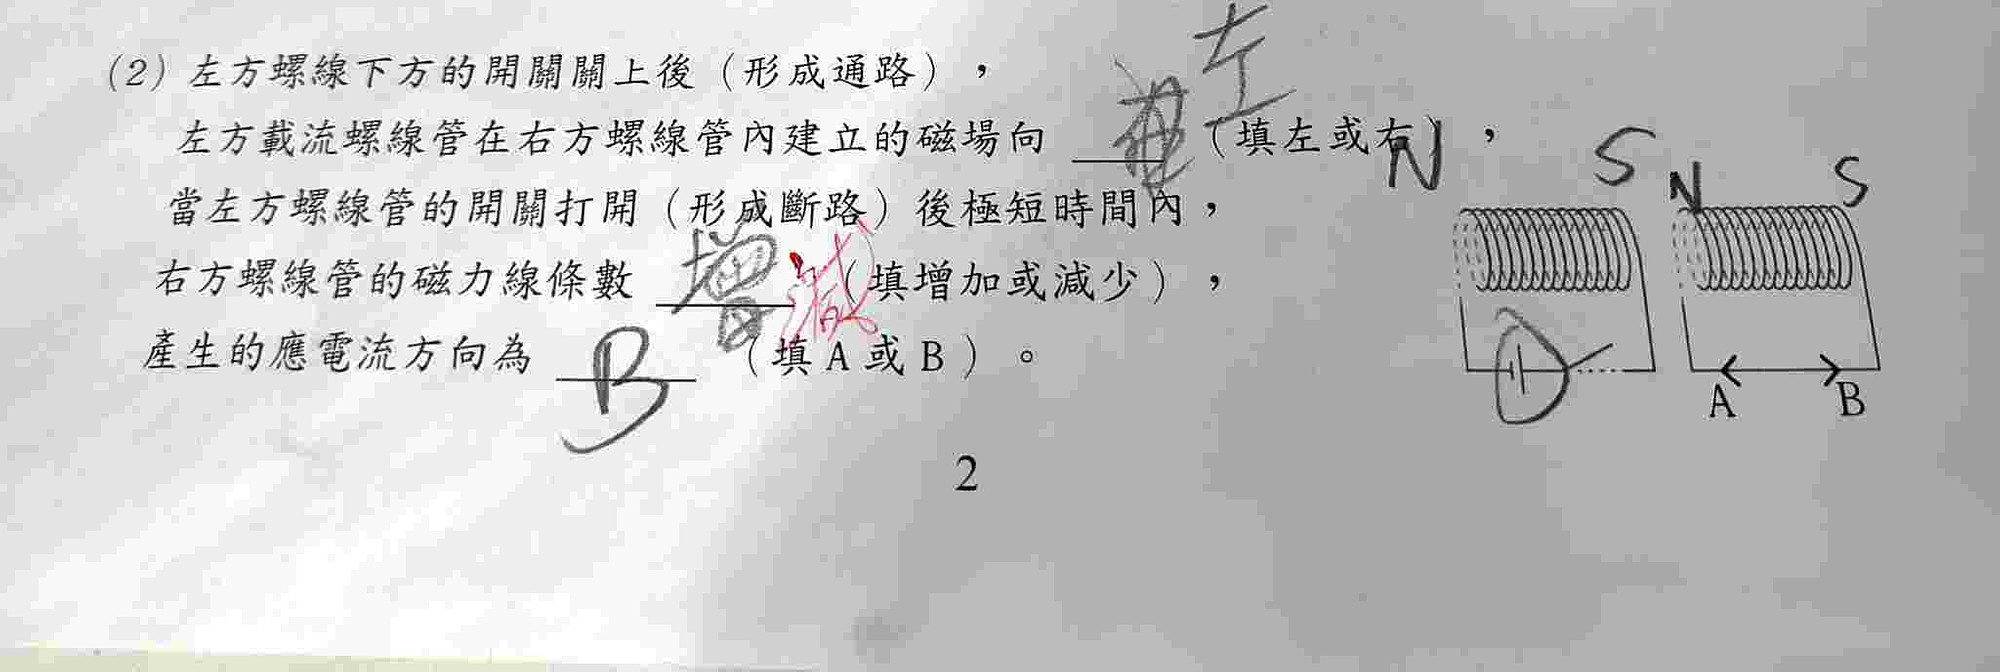 (2) 左方螺線下方的開關關上後（形成通路），
左方載流螺線管在右方螺線管內建立的磁場向 左（填左或右），
當左方螺線管的開關打開（形成斷路）後極短時間內，
右方螺線管的磁力線條數 增 減（填增加或減少），
產生的應電流方向為 B（填 A 或 B）。
N S N S
A B
2